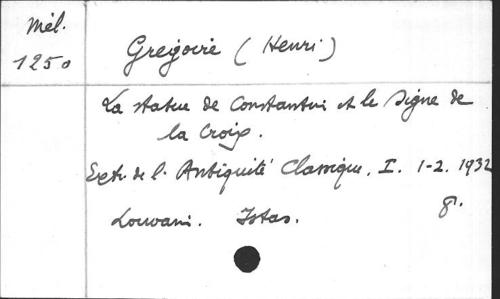 Mél.
1250
Gregoire (Henri)
La statue de Constantin et le signe de
la Croix.
Extr. de l. Antiquité Classique, I. 1-2. 1932
Louvain. Istas. 8°.